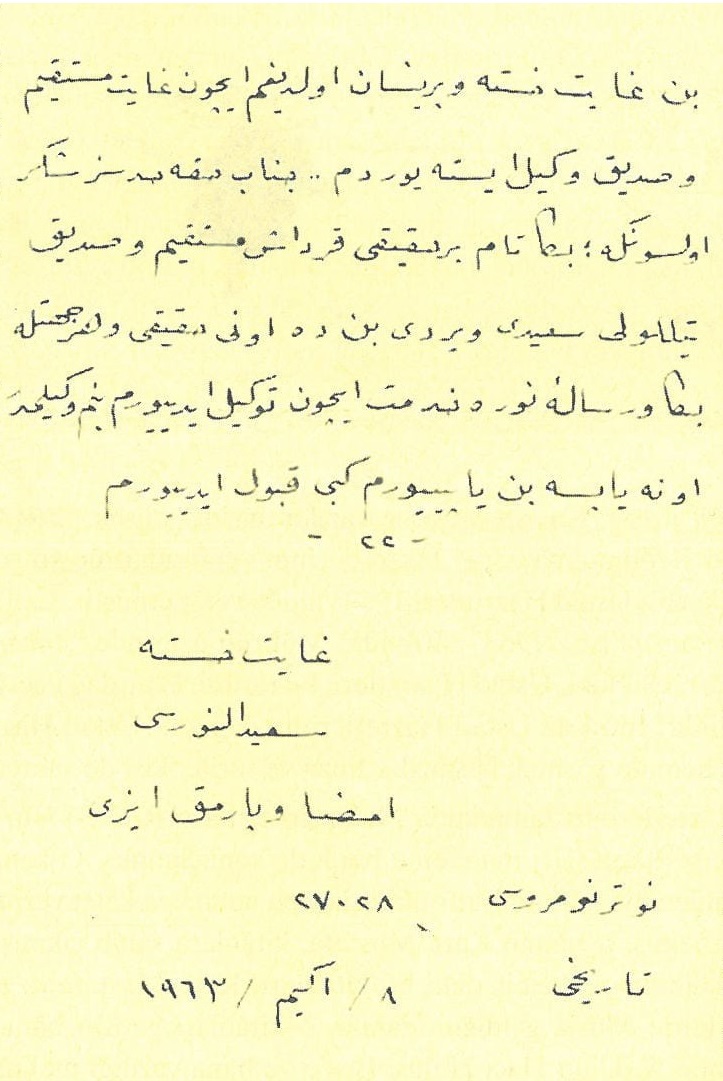 بن غایت خسته و پریشان اولدیغم ایچون غایت مستقیم
و صدیق وکیل ایسته یوردم .. جناب حقه حدسز شکر
اولسونکه ؛ بکا تام بر حقیقی قرداش مستقیم و صدیق
تیللولی سعیدی ویردی بن ده اونی حقیقی و هر جهتله
بکا و رسالۀ نوره خدمت ایچون توکیل ایدییورم بنم وکیلمدر
او نه یاپسه بن یاپییورم کبی قبول ایدییورم
- ٢٢ -
غایت خسته
سعید النورسی
امضا و پارمق ایزی
نوتر نومروسی ٢٧٠٢٨
تاریخی ٨ / اکیم / ١٩٦٣